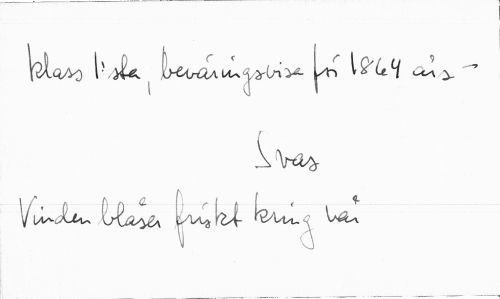 klass lista, beväringsvisa frå 1864 års
Svas
Vinden blåser friskt kring vår